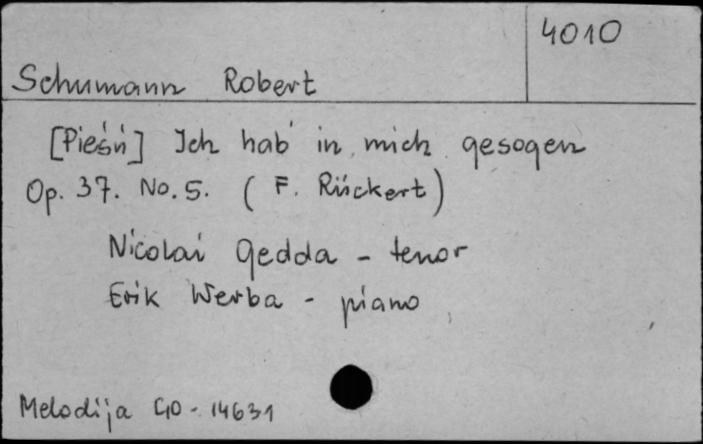 4010
Schumann Robert
[Pieśń] Ich hab' in mich gesogen
Op. 37. No. 5. (F. Rückert)
Nicolai Gedda - tenor
Erik Werba - piano
Melodija GO - 14631